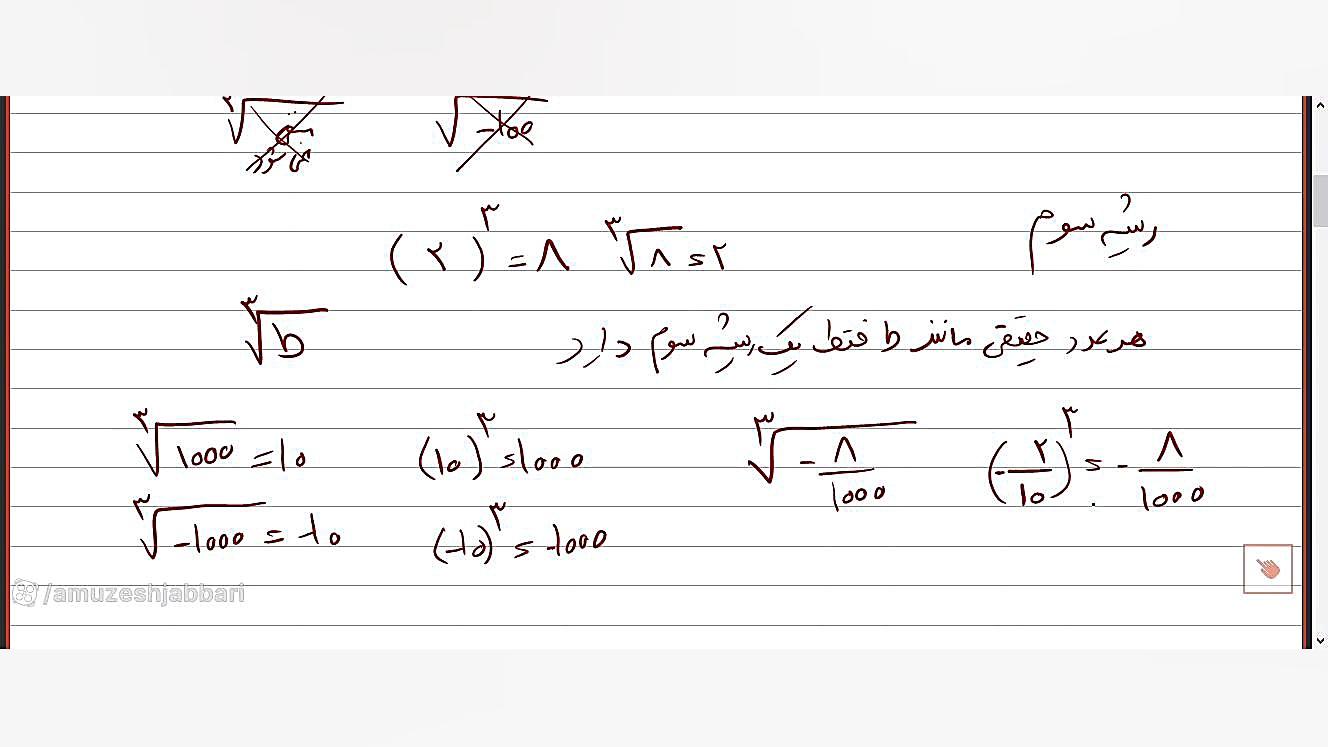 √-100
ریشه سوم
(۲)^۳ = ۸ ∛۸ = ۲
هر عدد حقیقی مانند b فقط یک ریشه سوم دارد ∛b
∛1000 = 10 (10)^۳ = 1000 ∛-۸/1000 (-۲/10)^۳ = -۸/1000
∛-1000 = -10 (-10)^۳ = -1000
/amuzeshjabbari